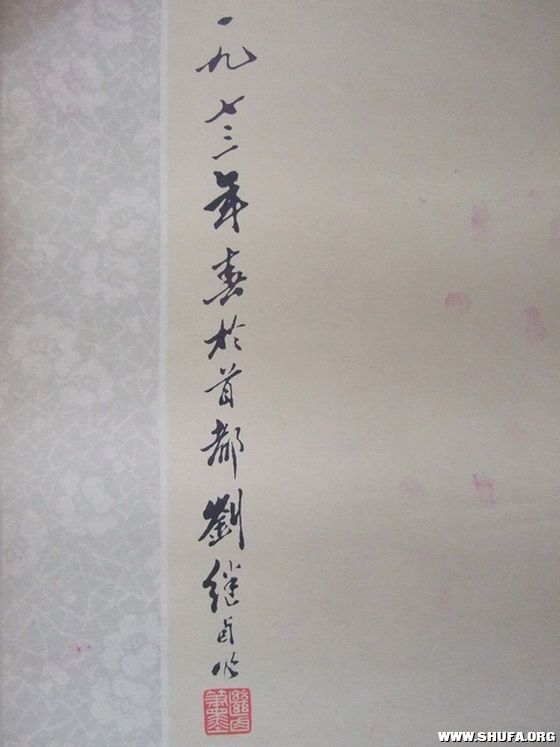 一九七三年春於首都劉继卣作
WWW.SHUFA.ORG